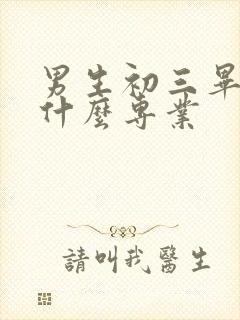 男生初三畢
什麼專業
請叫我醫生